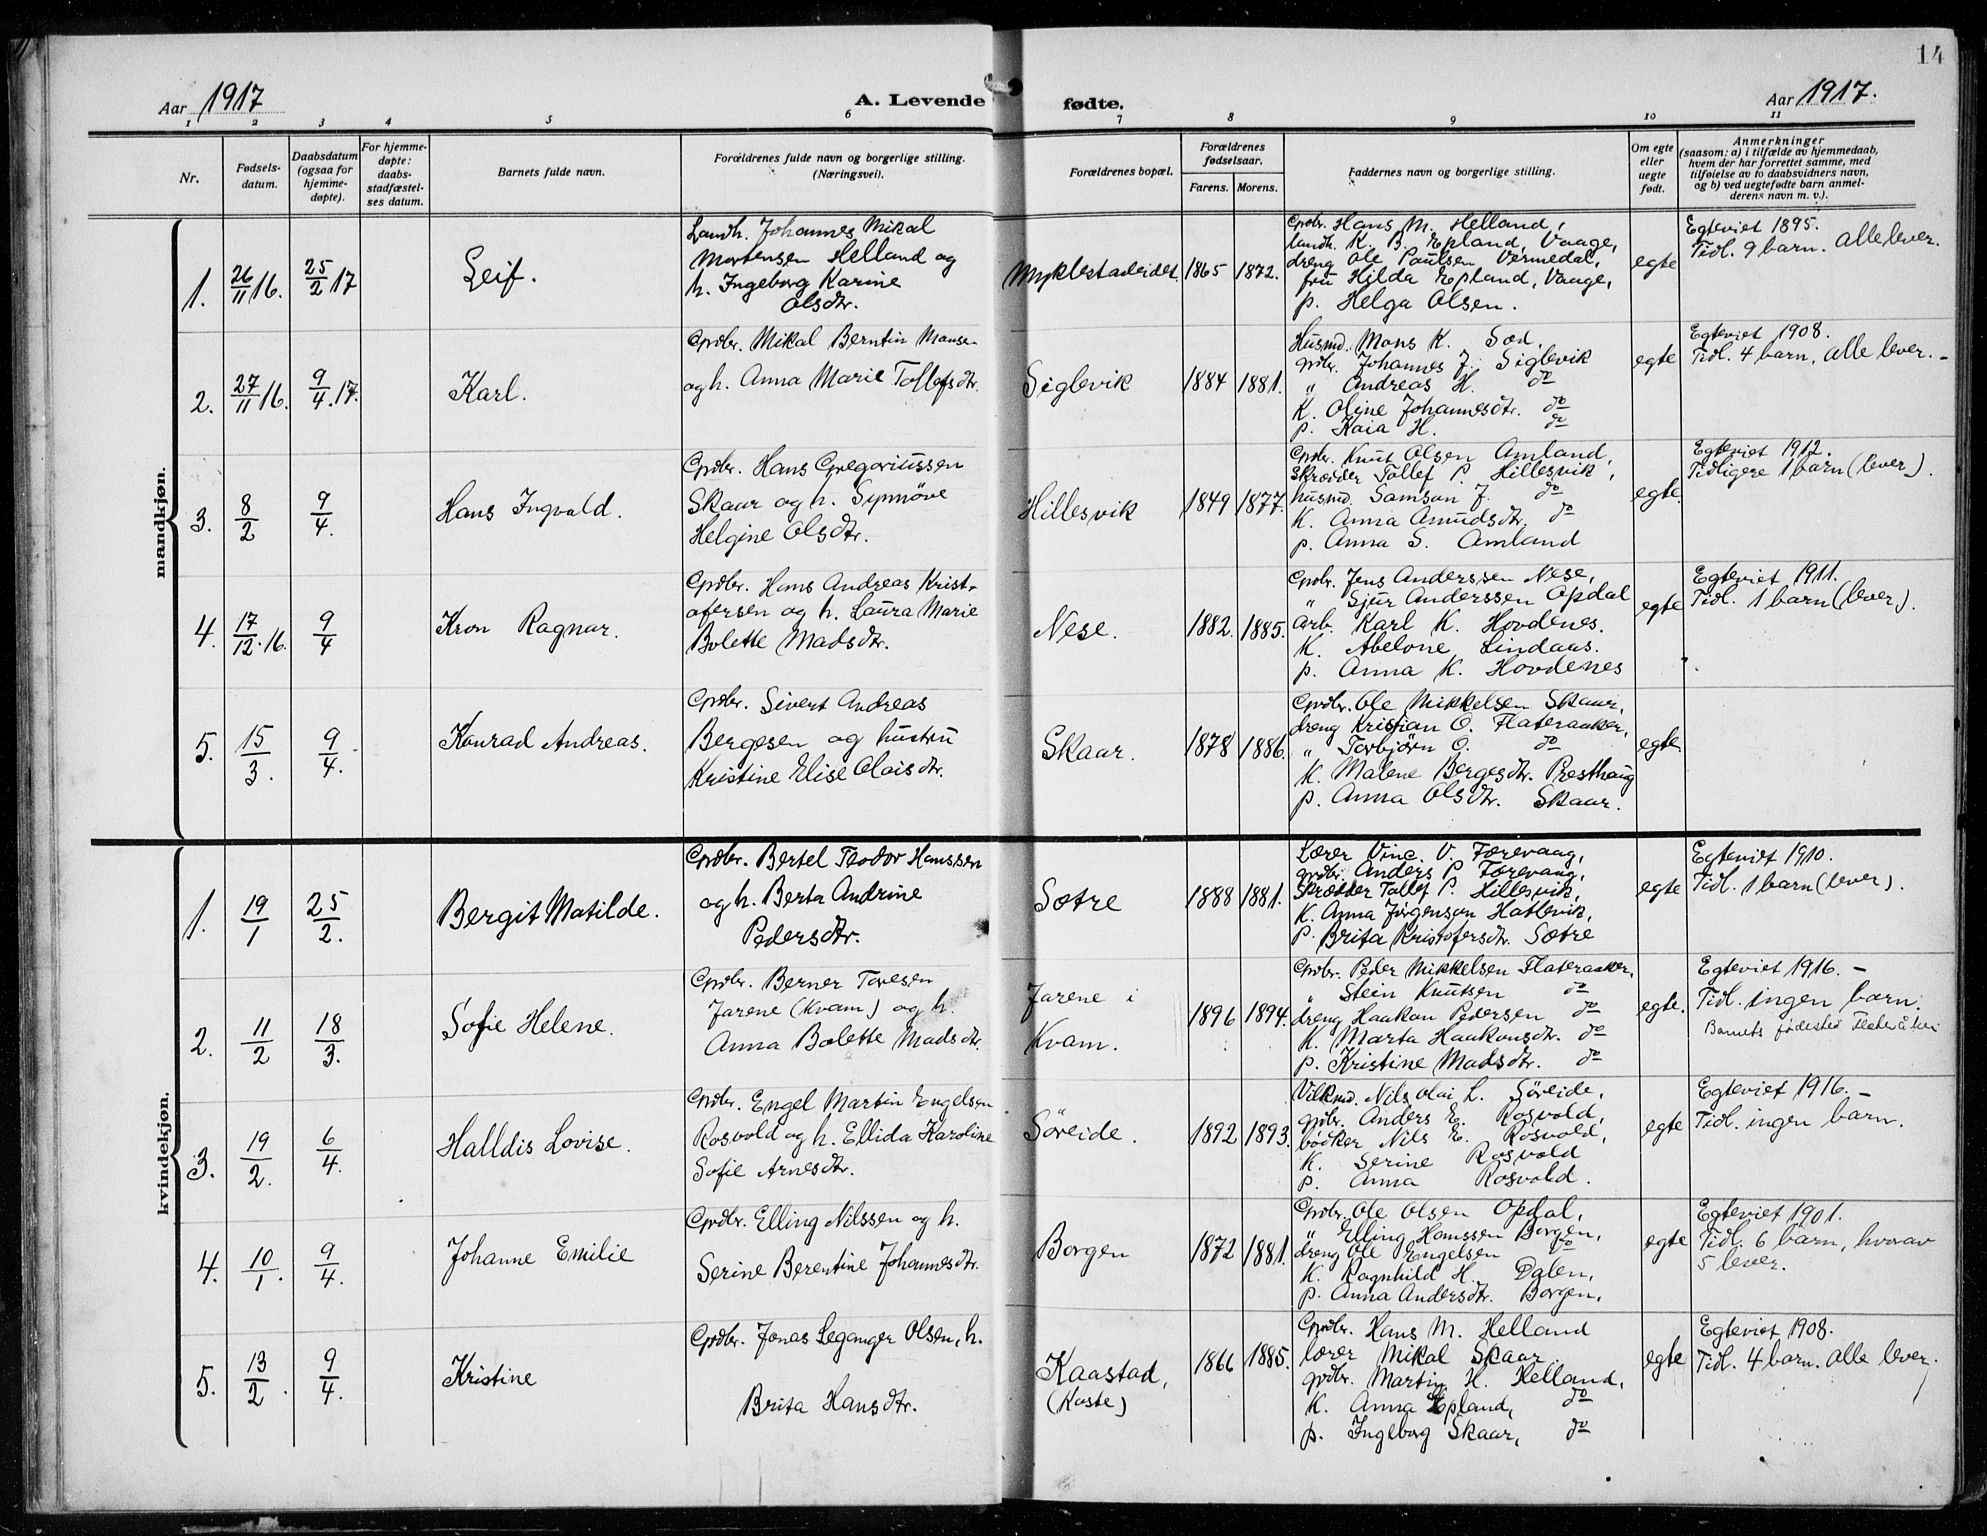 14
Aar 1917
A. Levende
fødte.
Aar 1917.
1 2 3 4 5 6 7 8 9 10 11
Nr.
Fødsels-
datum.
Daabsdatum
(ogsaa for
hjemme-
døpte).
For hjemme-
døpte:
daabs-
stadfæstel-
ses datum.
Barnets fulde navn.
Forældrenes fulde navn og borgerlige stilling.
(Næringsvei).
Forældrenes bopæl.
Forældrenes
fødselsaar.
Farens. Morens.
Faddernes navn og borgerlige stilling.
Om egte
eller
uegte
født.
Anmerkninger
(saasom: a) i tilfælde av hjemmedaab,
hvem der har forrettet samme, med
tilføielse av to daabsvidners navn,
og b) ved uegtefødte barn anmel-
derens navn m. v.).
mandkjøn.
1. 26/11 16. 25/2 17 Leif.
Landh. Johannes Mikal
Mortensen Helland og
h. Ingeborg Karine
Olsdtr.
Myklestadeidet. 1865 1872.
Grdbr. Hans M. Helland,
landh. K. B. Epland, Vaage,
dreng Ole Paulsen Vermedal,
fru Hilda Epland, Vaage,
p. Helga Olsen.
egte
Egteviet 1895.
Tidl. 9 barn. Alle lever.
2. 27/11 16. 9/4. 17. Karl.
Grdbr. Mikal Berntin Monsen
og h. Anna Marie Tollefsdtr.
Siglevik 1884 1881.
Husmd. Mons K. Sæd,
grdbr. Johannes J. Siglevik
" Andreas H. do
K. Oline Johannesdtr. do
p. Kaia H. do
egte
Egteviet 1908.
Tidl. 4 barn, alle lever. -
3. 8/2 9/4. Hans Ingvald.
Grdbr. Hans Gregoriussen
Skaar og h. Synnöve
Helgine Olsdtr.
Hillesvik 1849 1877.
Grdbr. Knut Olsen Amland,
Skrædder Tollef P. Hillesvik,
husmd. Samson J. do
K. Anna Amundsdtr. do
p. Anna S. Amland
egte.
Egteviet 1912.
Tidligere 1 barn (lever).
4. 17/12. 16. 9/4 Kron Ragnar.
Grdbr. Hans Andreas Krist-
ofersen og h. Laura Marie
Bolette Madsdtr.
Nese. 1882. 1885.
Grdbr. Jens Anderssen Nese,
" Sjur Anderssen Opdal
arb. Karl K. Hovdenes.
K. Abelone Lindaas.
p. Anna K. Hovdenes
egte
Egteviet 1911.
Tidl. 1 barn (lever).
5. 15/3. 9/4. Konrad Andreas.
Grdbr. Sivert Andreas
Bergesen og hustru
Kristine Elise Olaisdtr.
Skaar. 1878 1886.
Grdbr. Ole Mikkelsen Skaar,
dreng Kristian O. Flateraaker,
" Torbjørn O. do
K. Malene Bergesdtr. Presthaug
p. Anna Olsdtr. Skaar.
egte.
kvindekjøn.
1. 19/1 25/2. Bergit Matilde.
Grdbr. Bertel Teodor Hanssen
og h. Berta Andrine
Pedersdtr.
Sætre 1888 1881.
Lærer Vinc. V. Færevaag,
grdbr. Anders P. Færevaag,
Skrædder Tollef P. Hillesvik,
K. Anna Jørgenson Hatlevik,
p. Brita Kristofersdtr. Sætre
egte
Egteviet 1910.
Tidl. 1 barn (lever).
2. 11/2 18/3. Sofie Helene.
Grdbr. Berner Toresen
Jarene (Kvam) og h.
Anna Bolette Madsdtr.
Jarene i
Kvam.
1896 1894.
Grdbr. Peder Mikkelsen Flateraaker,
" Stein Knutsen do
dreng Haakon Pedersen do
K. Marta Haakonsdtr. do
p. Kristine Madsdtr. do
egte.
Egteviet 1916. -
Tidl. ingen barn.
Barnets fødested Flateråker
3. 19/2. 6/4. Halldis Lovise.
Grdbr. Engel Martin Engelsen
Rosvold og h. Ellida Karoline
Sofie Arnesdtr.
Søreide. 1892 1893.
Nils Olai L. Søreide,
grdbr. Anders E. Rosvold,
bødker Nils E. Rosvold,
K. Serine Rosvold
p. Anna Rosvold.
egte
Egteviet 1916. -
Tidl. ingen barn.
4. 10/1. 9/4. Johanne Emilie
Grdbr. Elling Nilssen og h.
Serine Berentine Johannesdtr.
Borgen 1872 1881.
Grdbr. Ole Olsen Opdal,
" Elling Hanssen Borgen,
dreng Ole Engelsen do
K. Ragnhild H. Dalen,
p. Anna Andersdtr. Borgen,
egte
Egteviet 1901.
Tidl. 6 barn, hvorav
5 lever.
5. 13/2. 9/4. Kristine
Grdbr. Jonas Leganger Olsen, h.
Brita Hansdtr.
Kaastad,
(Koste)
1866 1885.
Grdbr. Hans M. Helland
lærer Mikal Skaar
grdbr. Martin H. Helland,
K. Anna Epland, do
p. Ingeborg Skaar, do
egte
Egteviet 1908.
Tidl. 4 barn. Alle lever.